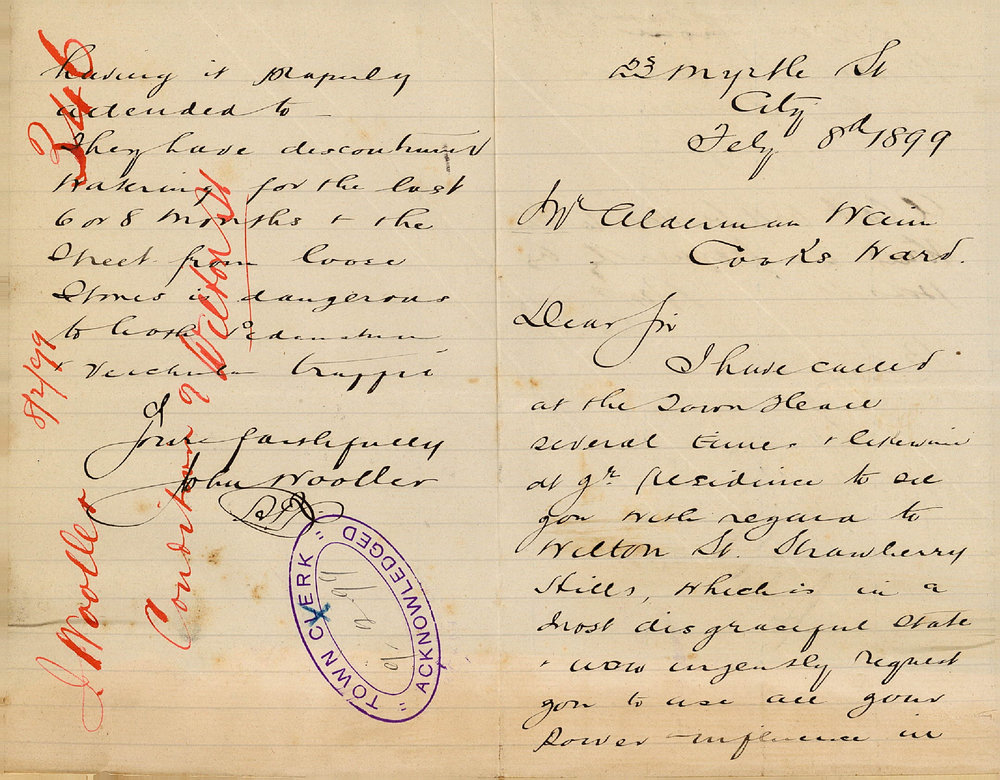 23 Myrtle St
City
Feby 8th 1899
Mr Alderman Wain
Cooks Ward.
Dear Sir
I have called
at the Town Hall
several times & likewise
at yr Residence to see
you with regard to
Wilton St. Strawberry
Hills, which is in a
most disgraceful state
& now urgently request
you to use all your
Power & influence in
having it properly
attended to
They have discontinued
Watering for the last
6 or 8 Months & the
Street from loose
Stones is dangerous
to both Pedestrian
& Veichular traffic
Yours faithfully
John Wooller
346
J Wooller 8/2/99
Condition of Wilton St
"TOWN CLERK"
ACKNOWLEDGED